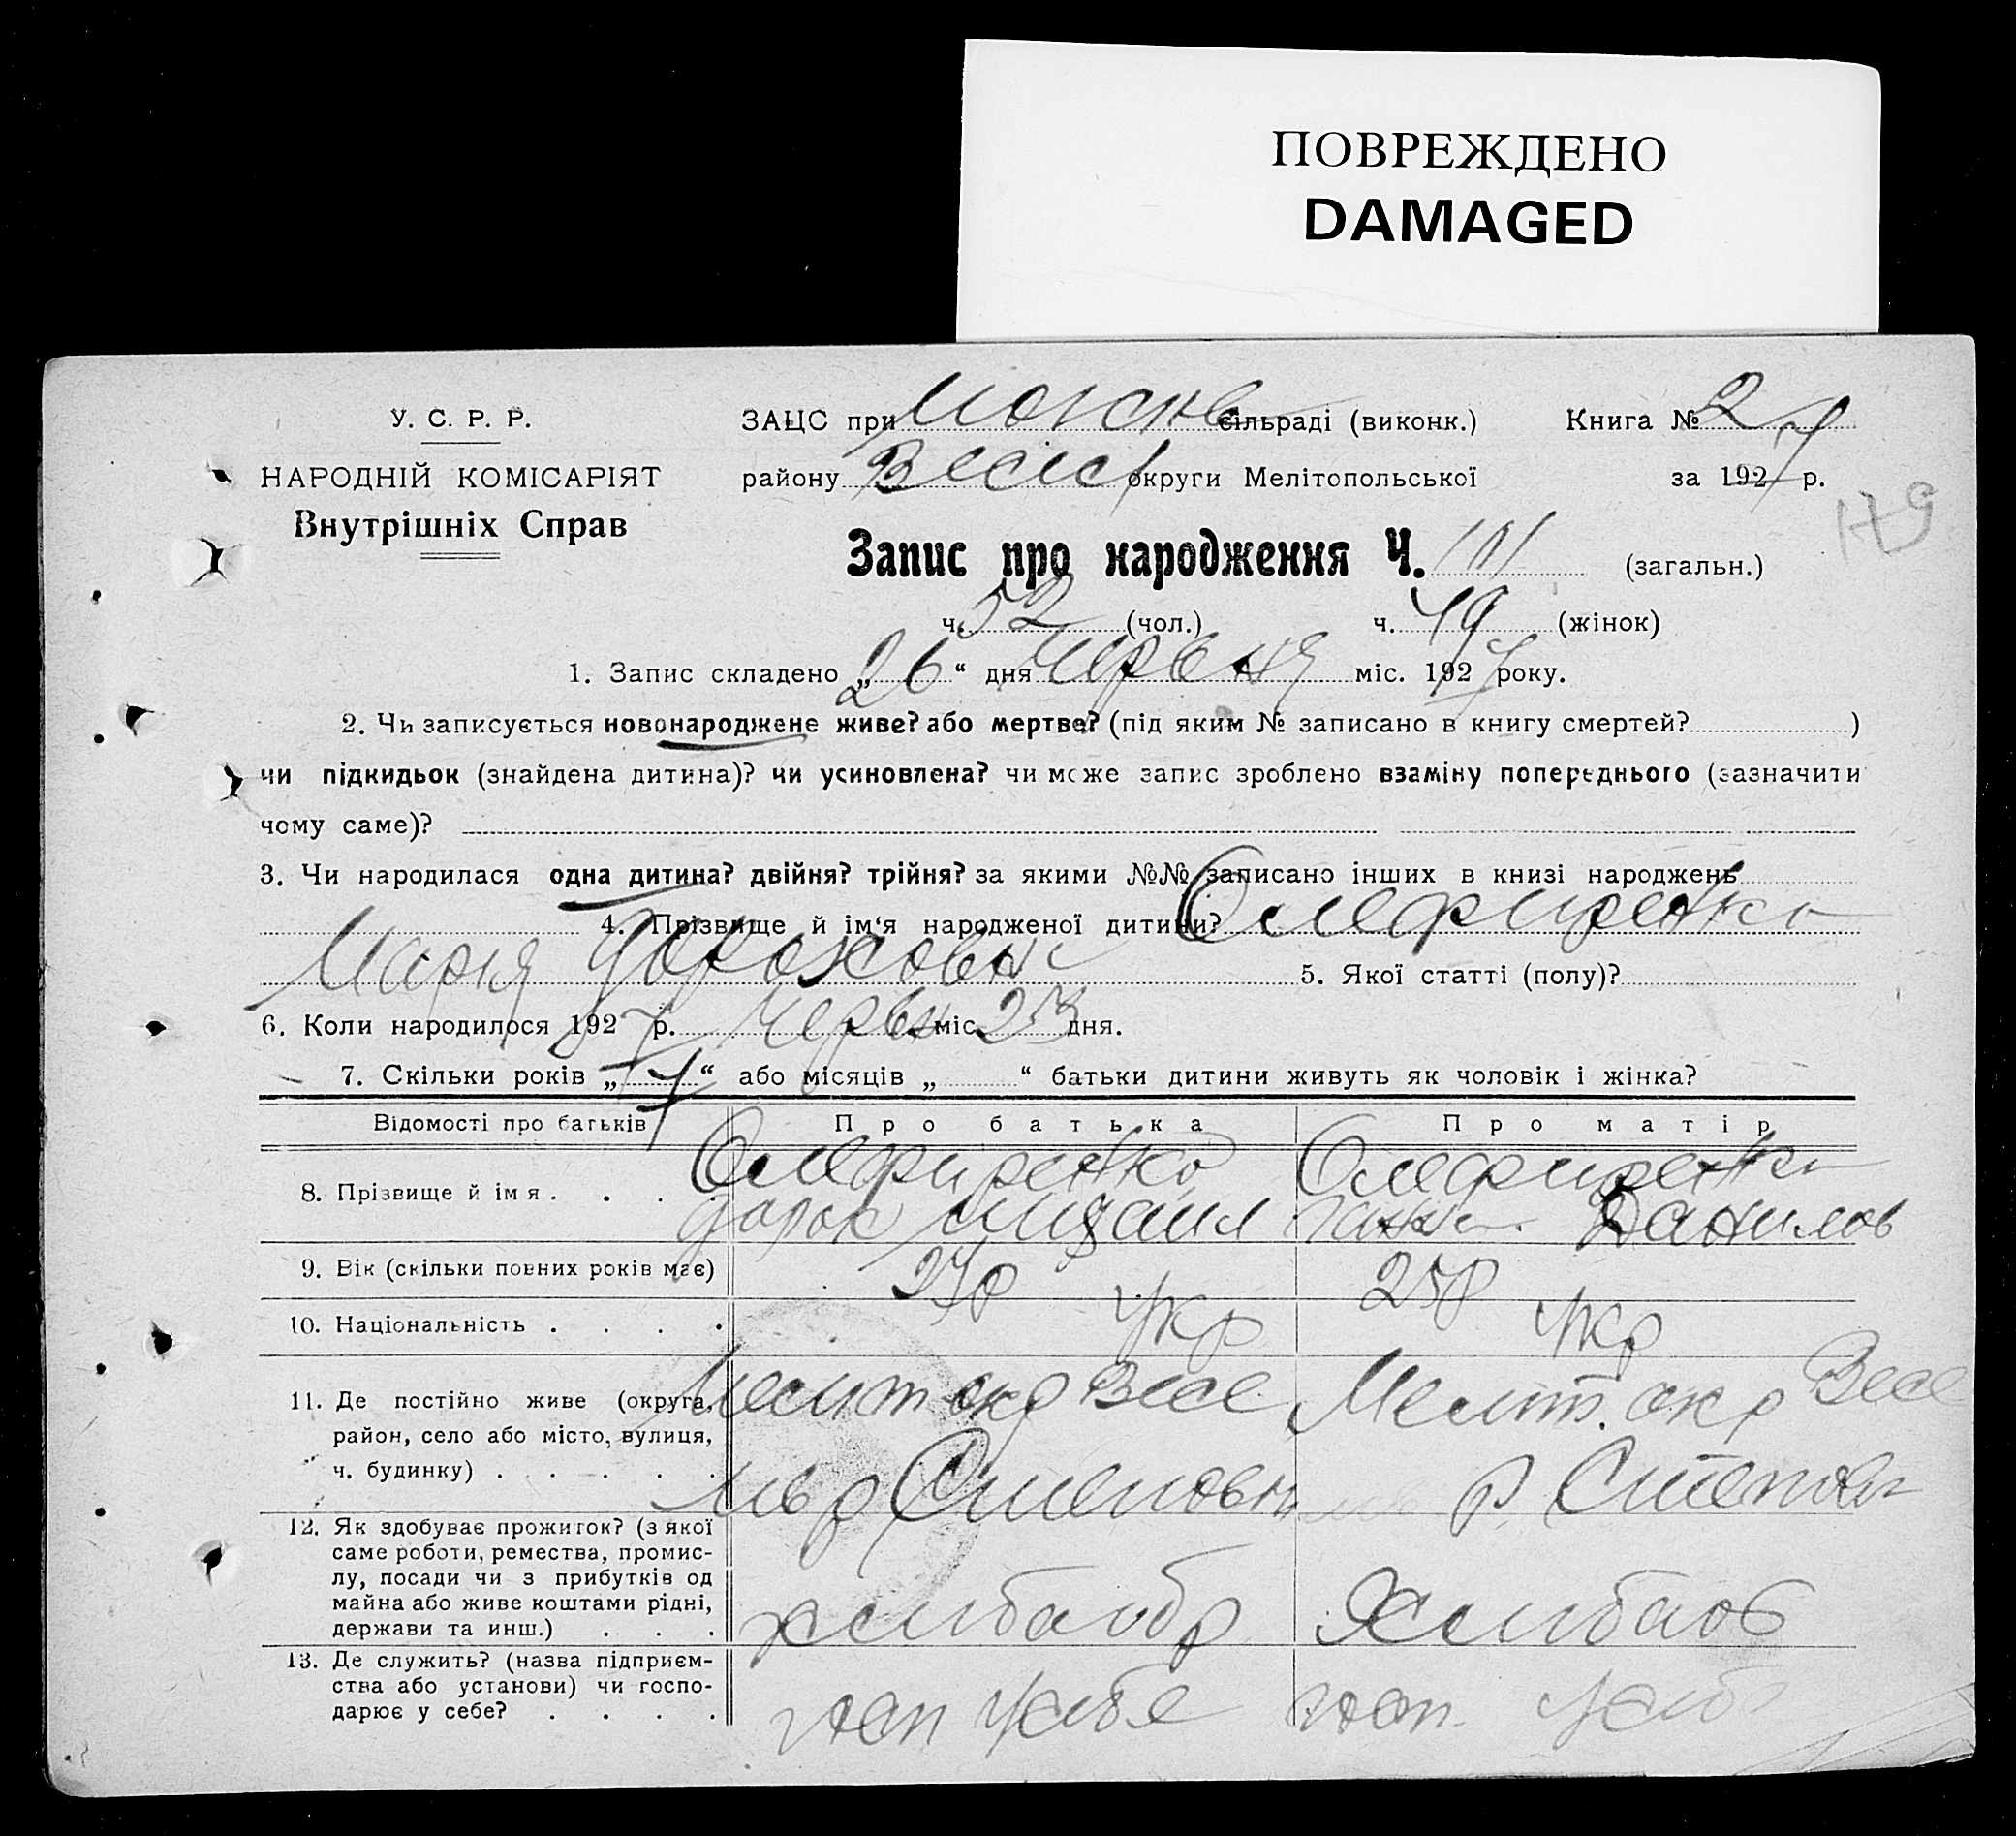 ПОВРЕЖДЕНО
DAMAGED
У. С. Р. Р.
НАРОДНІЙ КОМІСАРІЯТ
Внутрішніх Справ
ЗАЦС при сільраді (виконк.) Книга № 2
району Весел округи Мелітопольської за 1927 р.
179
Запис про народження Ч. 101 (загальн.)
ч. 52 (чол.) ч. 49 (жінок)
1. Запис складено „ 26 “ дня Червня міс. 1927 року.
2. Чи записується новонароджене живе? або мертве? (під яким № записано в книгу смертей? )
чи підкидьок (знайдена дитина)? чи усиновлена? чи може запис зроблено взаміну попереднього (зазначити
чому саме)?
3. Чи народилася одна дитина? двійня? трійня? за якими №№ записано інших в книзі народжень
4. Прізвище й ім‘я народженої дитини? Олефиренко
Марія 5. Якої статті (полу)?
6. Коли народилося 1927 р. Червн міс. 23 дня.
7. Скільки років „ 7 “ або місяців „ “ батьки дитини живуть як чоловік і жінка?
Відомості про батьків Про батька Про матір
8. Прізвище й імя . . . . Олефиренко Олефиренко
Михаил Данилов
9. Вік (скільки повних років має) 27р 25р
10. Національність . . . . Укр Укр
11. Де постійно живе (округа, Мелит окр Весе Мелит. окр Весе
район, село або місто, вулиця,
ч. будинку) . . . . . р Степовк р. Степов
12. Як здобуває прожиток? (з якої
саме роботи, ремества, промис-
лу, посади чи з прибутків од
майна або живе коштами рідні,
держави та инш.) . . . хлибообр Хлибооб
13. Де служить? (назва підприєм-
ства або установи) чи госпо-
дарює у себе? . . . . госп усибе госп. усиб